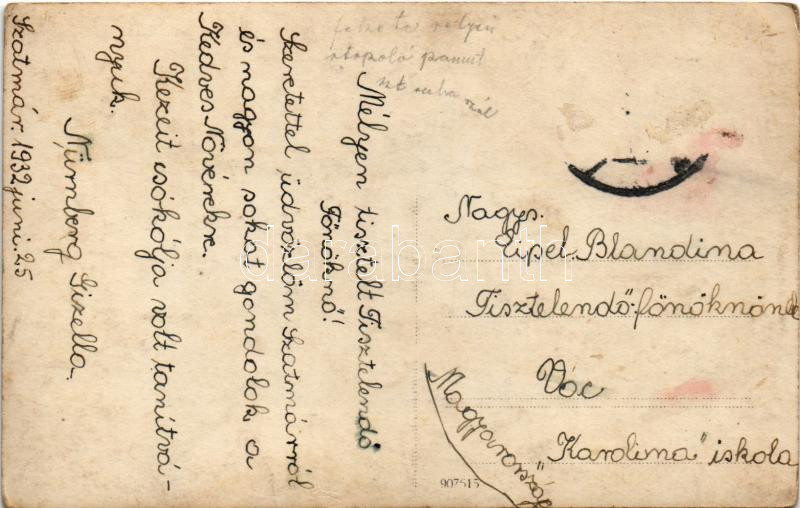 Szatmár. 1932 juni. 25
Mélyen tisztelt Tisztelendő
Főnöknő!
Szeretettel üdvözlöm Szatmárról
és nagyon sokat gondolok a
Kedves Nővérekre.
Kezeit csókolja volt tanítvá-
nyuk.
Nürnberg Gizella.
Nagys.
Lipel Blandina
Tisztelendő-főnöknőnek
Vác
"Karolima" iskola
Magyarország
907515
darabanth